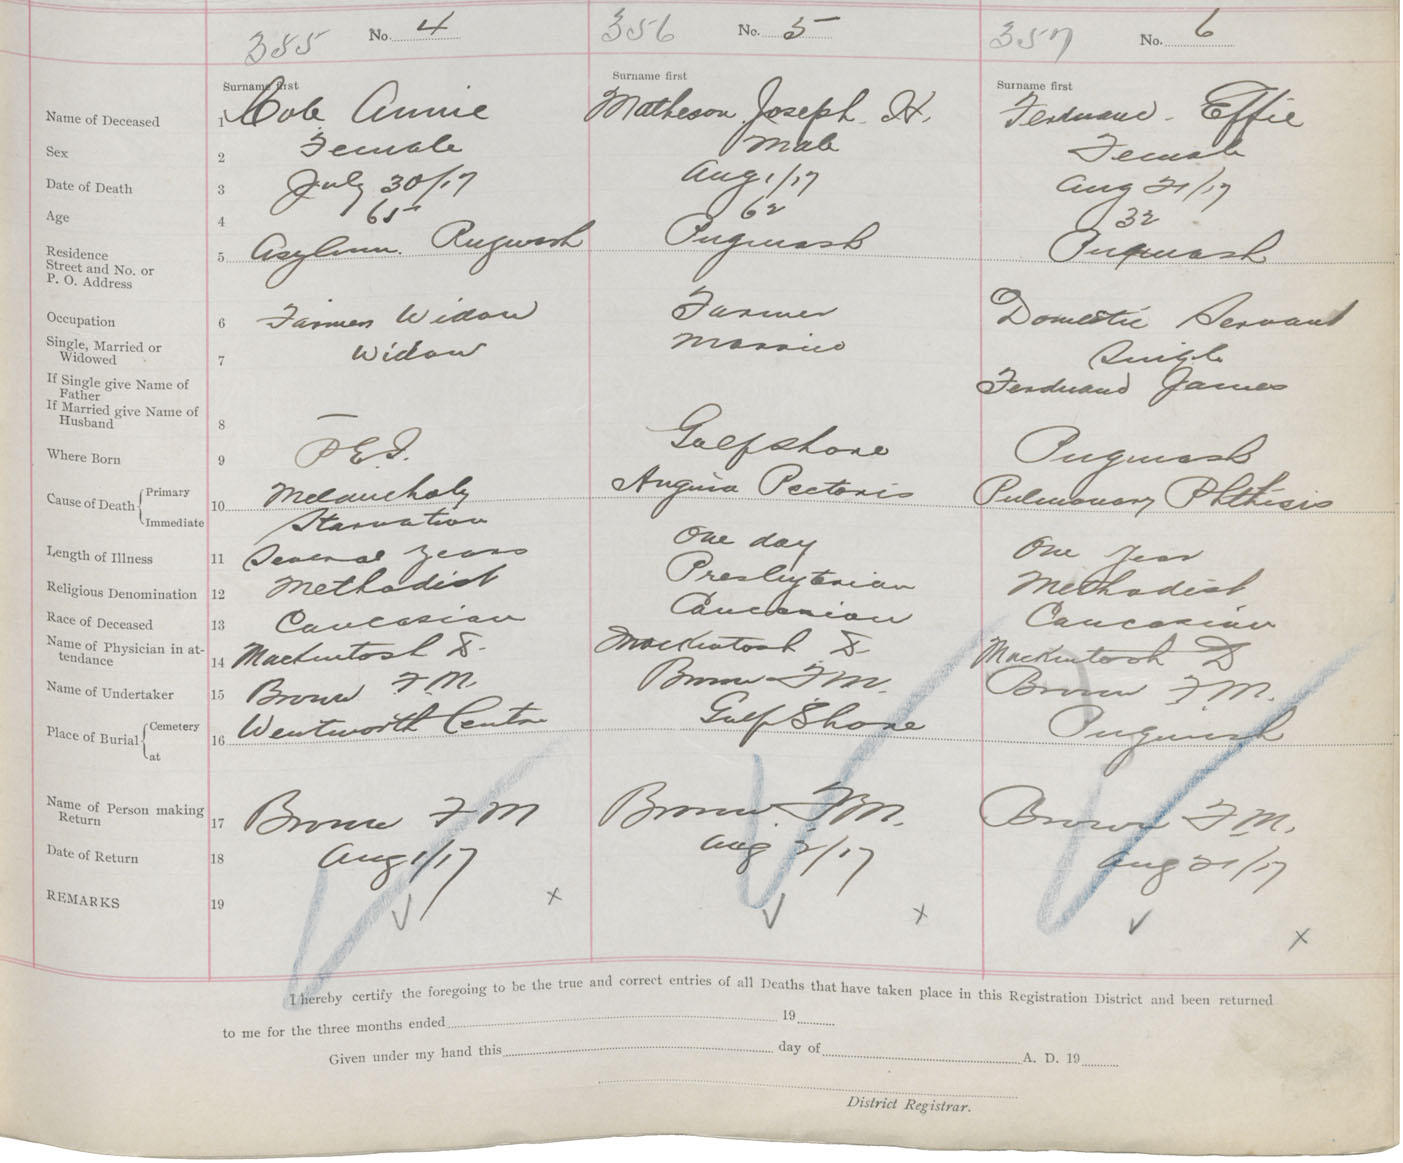 385 No. 4 356 No. 5 357 No. 6
Surname first Surname first Surname first
Name of Deceased 1 Cole Annie Matheson Joseph H. Ferdinand. Effie
Sex 2 Female Male Female
Date of Death 3 July 30/17 Aug 1/17 Aug 21/17
Age 4 65 62 32
Residence
Street and No. or
P. O. Address 5 Asylum. Pugwash Pugwash Pugwash
Occupation 6 Farmers Widow Farmer Domestic Servant
Single, Married or
Widowed 7 Widow Married Single
If Single give Name of
Father Ferdinand James
If Married give Name of
Husband 8 —
Where Born 9 P.E.I. Gulf Shore Pugwash
Cause of Death { Primary 10 Melancholy Angina Pectoris Pulmonary Phthisis
Immediate Starvation
Length of Illness 11 Several Years One day One Year
Religious Denomination 12 Methodist Presbyterian Methodist
Race of Deceased 13 Caucasian Caucasian Caucasian
Name of Physician in at-
tendance 14 Mackintosh D. Mackintosh D. Mackintosh D
Name of Undertaker 15 Brown F.M. Brown F.M. Brown F.M.
Place of Burial { Cemetery 16 Wentworth Centre Gulf Shore Pugwash
at
Name of Person making
Return 17 Brown F M Brown F.M. Brown F.M.
Date of Return 18 Aug 1/17 Aug 2/17 Aug 21/17
REMARKS 19 ✓ x ✓ x ✓ x
I hereby certify the foregoing to be the true and correct entries of all Deaths that have taken place in this Registration District and been returned
to me for the three months ended 19
Given under my hand this day of A. D. 19
District Registrar.